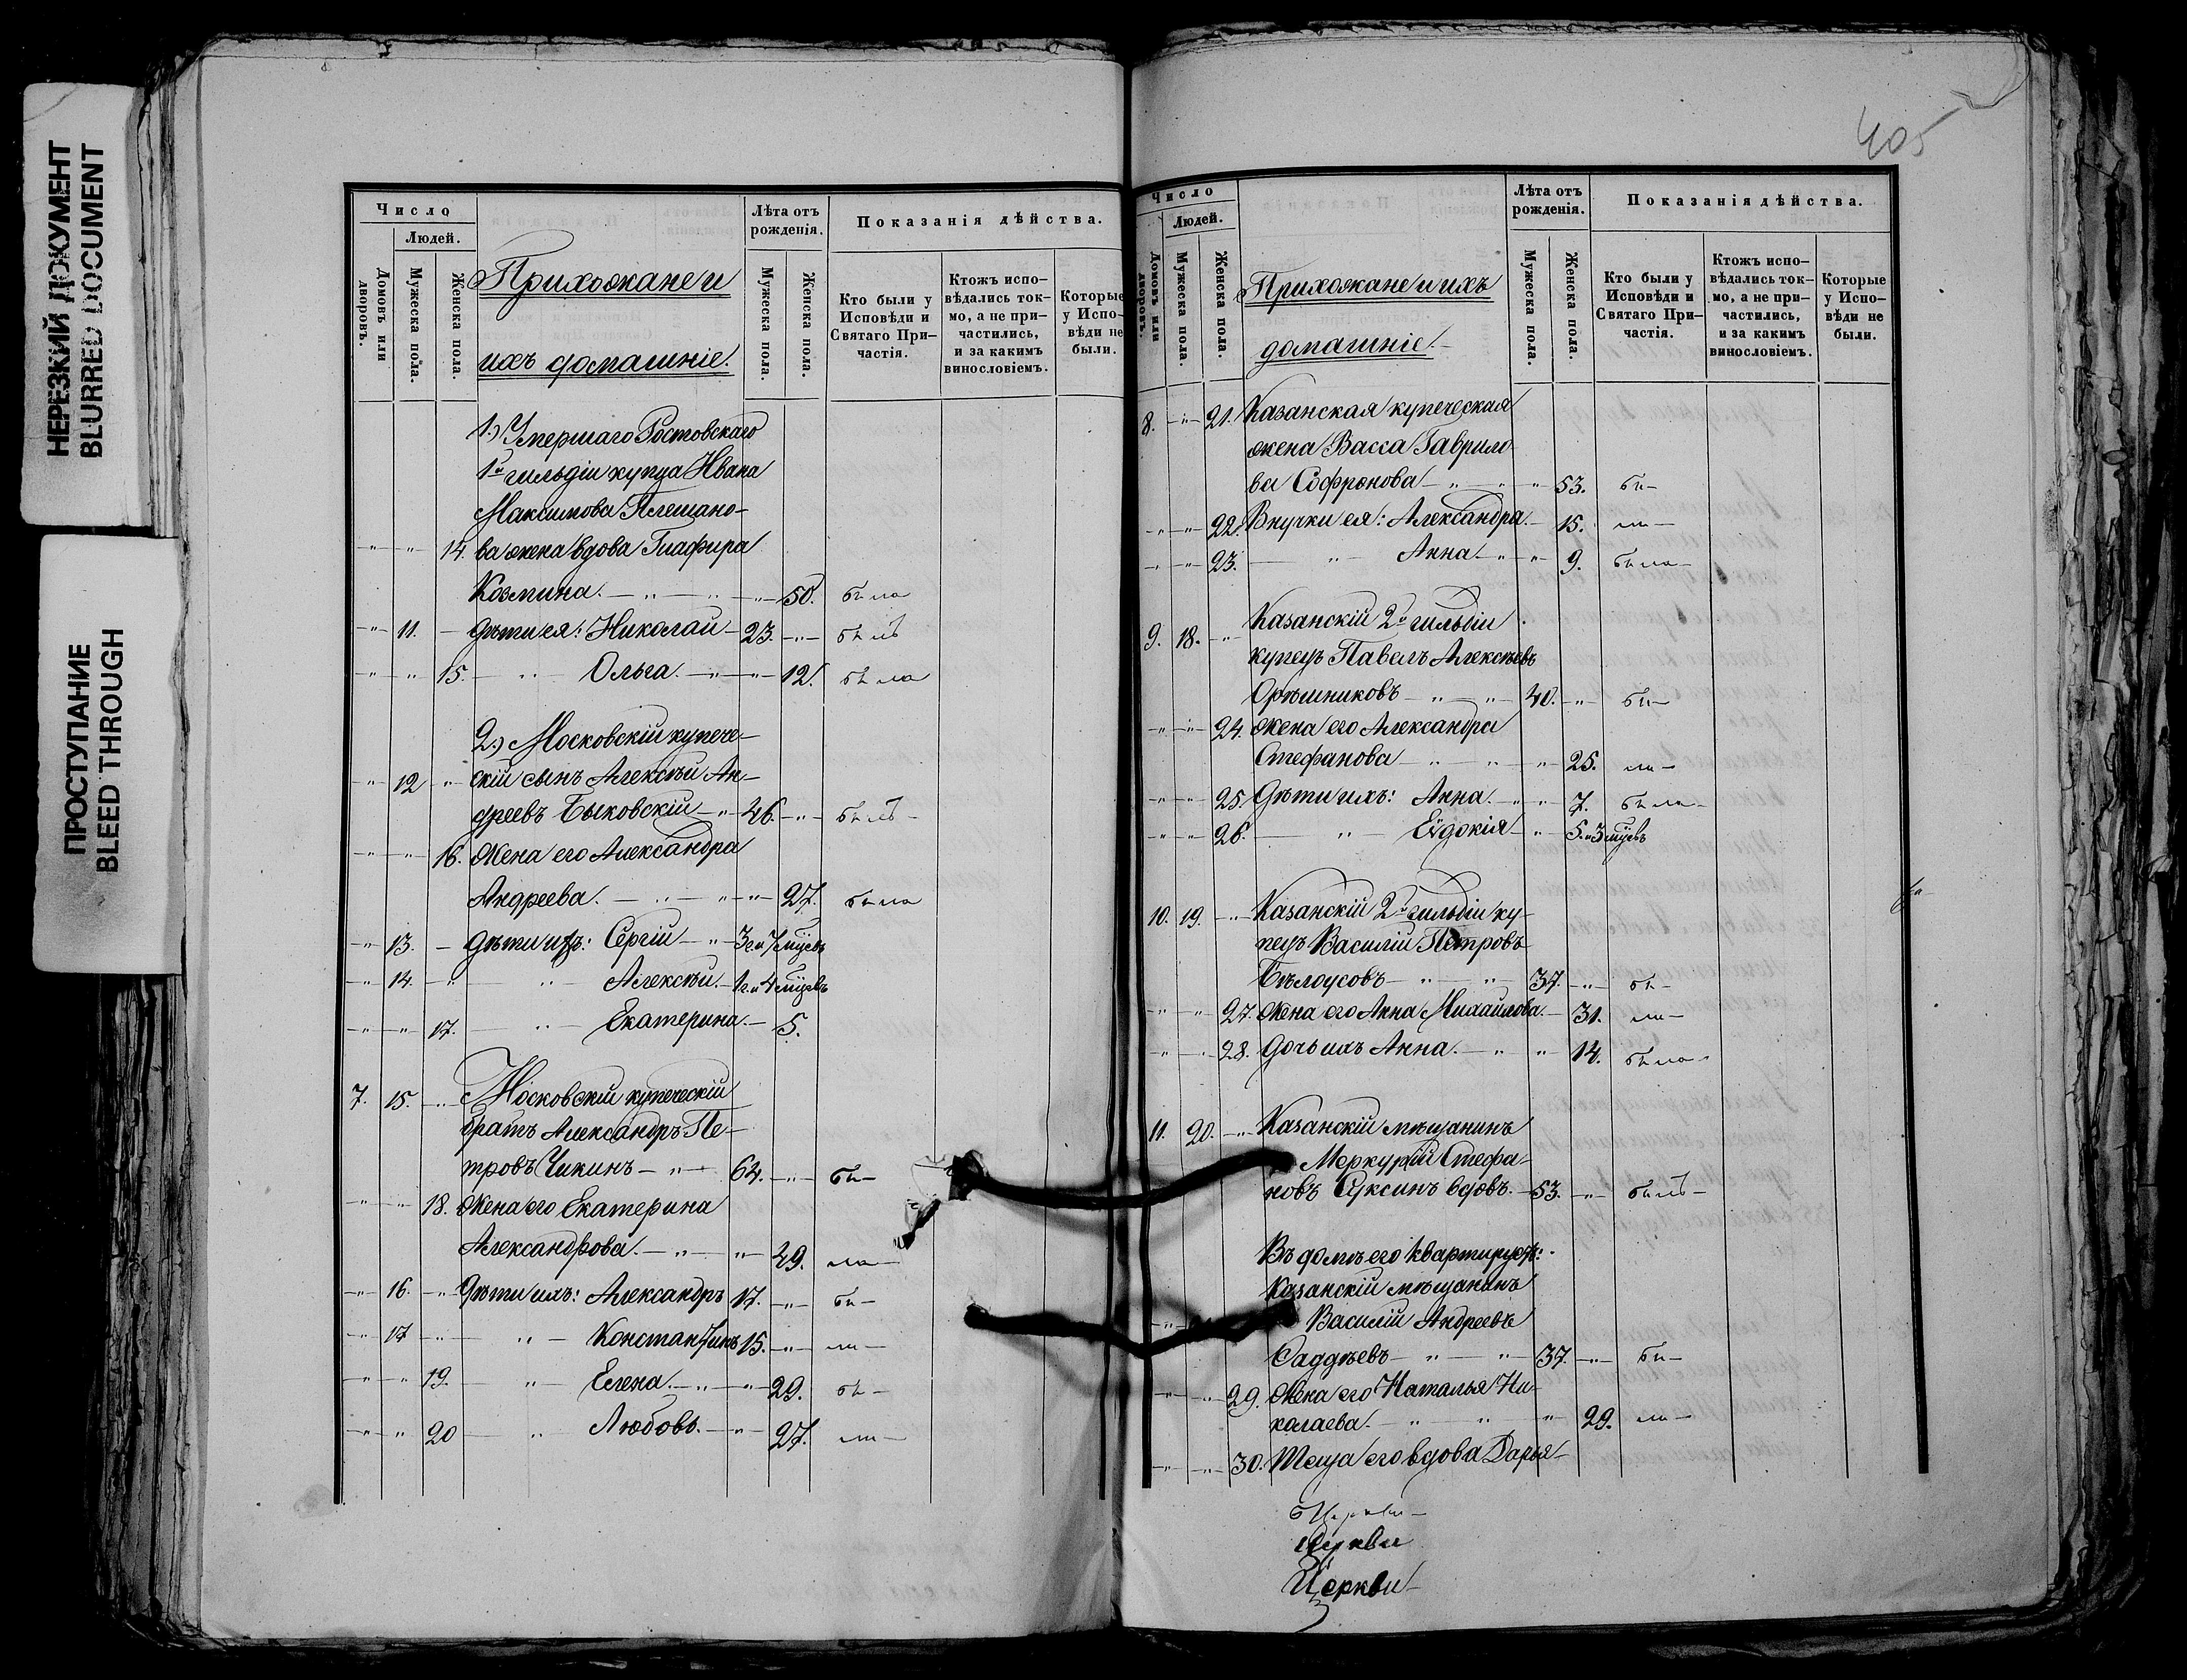 НЕРЕЗКИЙ ДОКУМЕНТ
BLURRED DOCUMENT
ПРОСТУПАНИЕ
BLEED THROUGH
Число
Людей.
Домовъ или дворовъ.
Мужеска пола.
Женска пола.
Прихожане и
ихъ домашніе.
Лѣта отъ рожденія.
Мужеска пола.
Женска пола.
Показанія дѣйства.
Кто были у Исповѣди и Святаго При-частія.
Ктожъ испо-вѣдались ток-мо, а не при-частились, и за какимъ винословіемъ.
Которые у Испо-вѣди не были.
1.) Умершаго Ростовскаго
1й гильдіи купца Ивана
Максимова Плешано-
" " 14. ва жена вдова Глафира
Козмина. " " " 50. была
" 11. дѣти ея: Николай 23. " былъ
" " 15. " Ольга. " " 12. была
2.) Московскій купече-
" 12 " скій сынъ Алексѣй Ан-
дреевъ Быковскій " 46. " былъ
" " 16. Жена его Александра
Андреева. " " " 27. была
" 13. дѣти ихъ: Сергій " 3 г. и 7 мцевъ
" 14. " " Алексѣй. 1 г. и 4 мцевъ
" " 17. " Екатерина. 5.
7. 15. " Московскій купеческій
братъ Александръ Пе-
тровъ Чикинъ " 64. " бы-
" " 18. Жена его Екатерина
Александрова. " " 49. ли-
" 16. " Дѣти ихъ: Александръ 17. " бы-
" 17 " " Константинъ 15. " ли-
" " 19. " Елена. " " 29. бы-
" " 20 " Любовь. " 27. ли-
405
Число
Людей.
Домовъ или дворовъ.
Мужеска пола.
Женска пола.
Прихожане и ихъ
домашніе.
Лѣта отъ рожденія.
Мужеска пола.
Женска пола.
Показанія дѣйства.
Кто были у Исповѣди и Святаго При-частія.
Ктожъ испо-вѣдались ток-мо, а не при-частились, и за какимъ винословіемъ.
Которые у Испо-вѣди не были.
8. " 21. Казанская купеческая
жена Васса Гаврило-
ва Софронова " " " 53. бы-
" " 22. Внучки ея: Александра. 15. ли-
" " 23. " Анна. " " 9. была
9. 18. " Казанскій 2й гильдіи
купецъ Павелъ Алексѣевъ
Орѣшниковъ " " 40. " бы-
" " 24. Жена его Александра
Стефанова " " " 25. ли-
" " 25. Дѣти ихъ: Анна. " " 7. была
" " 26. " Еѵдокія " 5. и 3 мцевъ
10. 19. " Казанскій 2й гильдіи ку-
пецъ Василій Петровъ
Бѣлоусовъ " " 37. " бы-
" " 27. Жена его Анна Михайлова. 31. ли-
" " 28. Дочь ихъ Анна. " " 14. была
11. 20. " Казанскій мѣщанинъ
Меркурій Стефа-
новъ Суксинъ вдовъ. 53. " былъ
Въ домѣ его квартируютъ:
Казанскій мѣщанинъ
" Василій Андреевъ
Фаддѣевъ " " 37. " бы-
" " 29. Жена его Наталья Ни-
колаева. " " " 29. ли-
" " 30. Теща его вдова Дарья
Церкви
Церкви